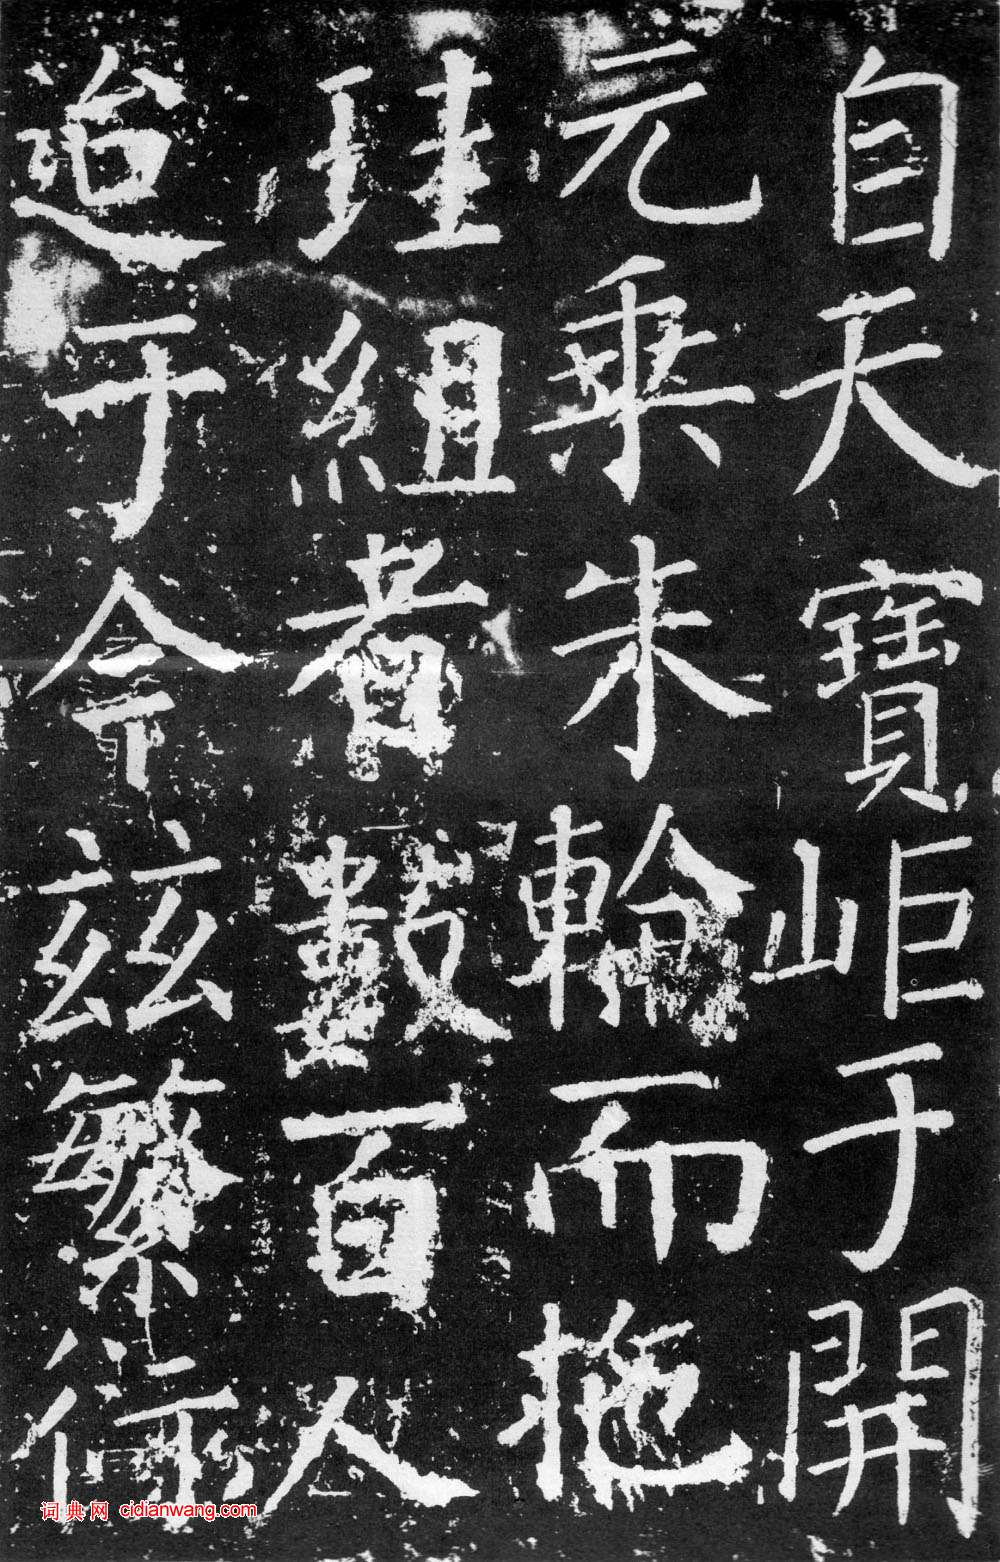 自天寶岠于開
元乗朱輪而拖
珪組者數百人
迨于今茲繁衍
词典网 cidianwang.com